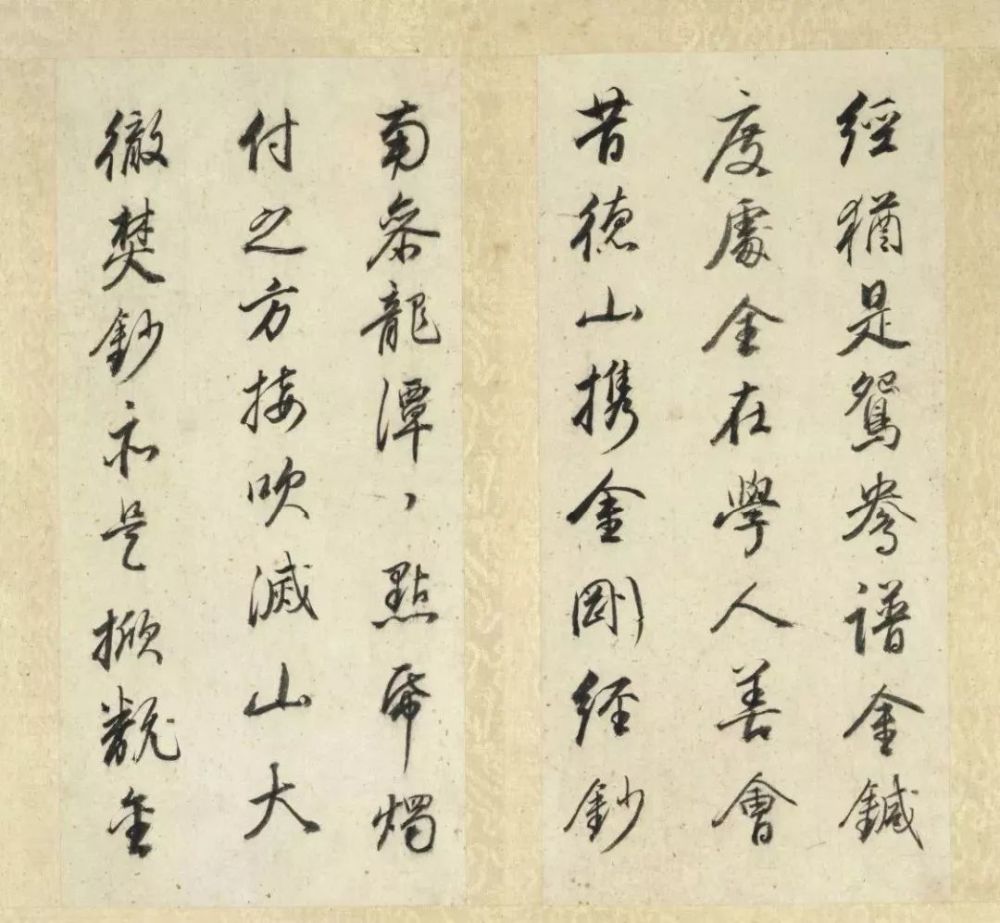 經猶是鴛鴦譜金鍼
度處全在學人善會
昔德山携金剛經鈔
南叅龍潭、點帋燭
付之方接吹滅山大
徹焚鈔亦是掀飜金